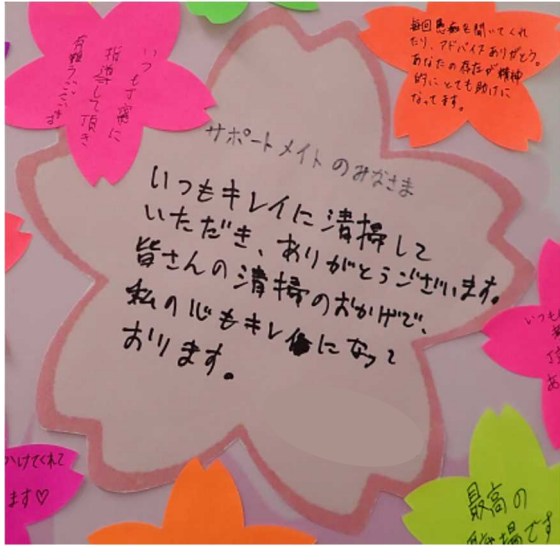 いつも丁寧に
指導して頂き
有難うございます
毎回愚痴を聞いてくれ
たり、アドバイスありがとう。
あなたの存在が精神
的にとても助けに
なってます。
サポートメイトのみなさま
いつもキレイに清掃して
いただき、ありがとうございます。
皆さんの清掃のおかげで、
私の心もキレイになって
おります。
いつも
かけてくれて
ます♡
最高の
職場です